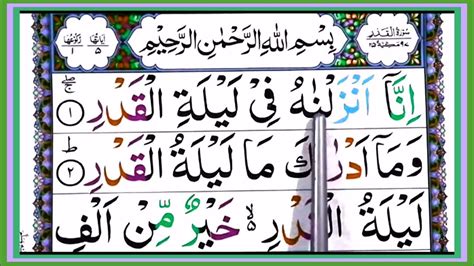 سُوْرَةُ الْقَدْرِ
اٰيَاتُهَا ٥
رُكُوْعُهَا ١
بِسْمِ اللّٰهِ الرَّحْمٰنِ الرَّحِيْمِ
اِنَّاۤ اَنْزَلْنٰهُ فِيْ لَيْلَةِ الْقَدْرِ ١
وَمَاۤ اَدْرٰىكَ مَا لَيْلَةُ الْقَدْرِ ٢
لَيْلَةُ الْقَدْرِ خَيْرٌ مِّنْ اَلْفِ